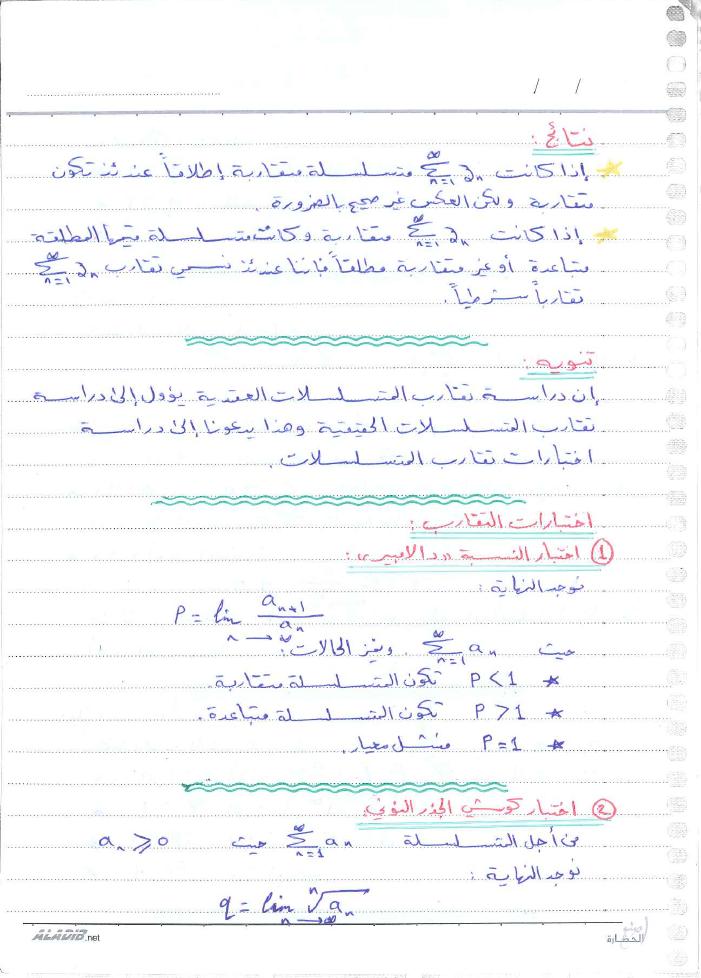 / /
نتائج:
إذا كانت $\sum_{n=1}^{\infty} z_n$ متسلسلة متقاربة إطلاقاً عندئذ تكون
متقاربة ولكن العكس غير صحيح بالضرورة.
إذا كانت $\sum_{n=1}^{\infty} z_n$ متقاربة وكانت متسلسلة قيمها المطلقة
متباعدة أو غير متقاربة مطلقاً فإننا عندئذ نسمي تقارب $\sum_{n=1}^{\infty} z_n$
تقارباً شرطياً.
تنويه:
إن دراسة تقارب المتسلسلات العقدية يؤول إلى دراسة
تقارب المتسلسلات الحقيقية وهذا يدعونا إلى دراسة
اختبارات تقارب المتسلسلات.
اختبارات التقارب:
① اختبار النسبة "دالامبير":
نوجد النهاية:
$P = \lim_{n \to \infty} \frac{a_{n+1}}{a_n}$
حيث $\sum_{n=1}^{\infty} a_n$. ونميز الحالات:
* P < 1 تكون المتسلسلة متقاربة.
* P > 1 تكون المتسلسلة متباعدة.
* P = 1 فشل معيار.
② اختبار كوشي الجذر النوني
من أجل المتسلسلة $\sum_{n=1}^{\infty} a_n$ حيث $a_n \geq 0$
نوجد النهاية:
$q = \lim_{n \to \infty} \sqrt[n]{a_n}$
ALADIB.net
الحضارة